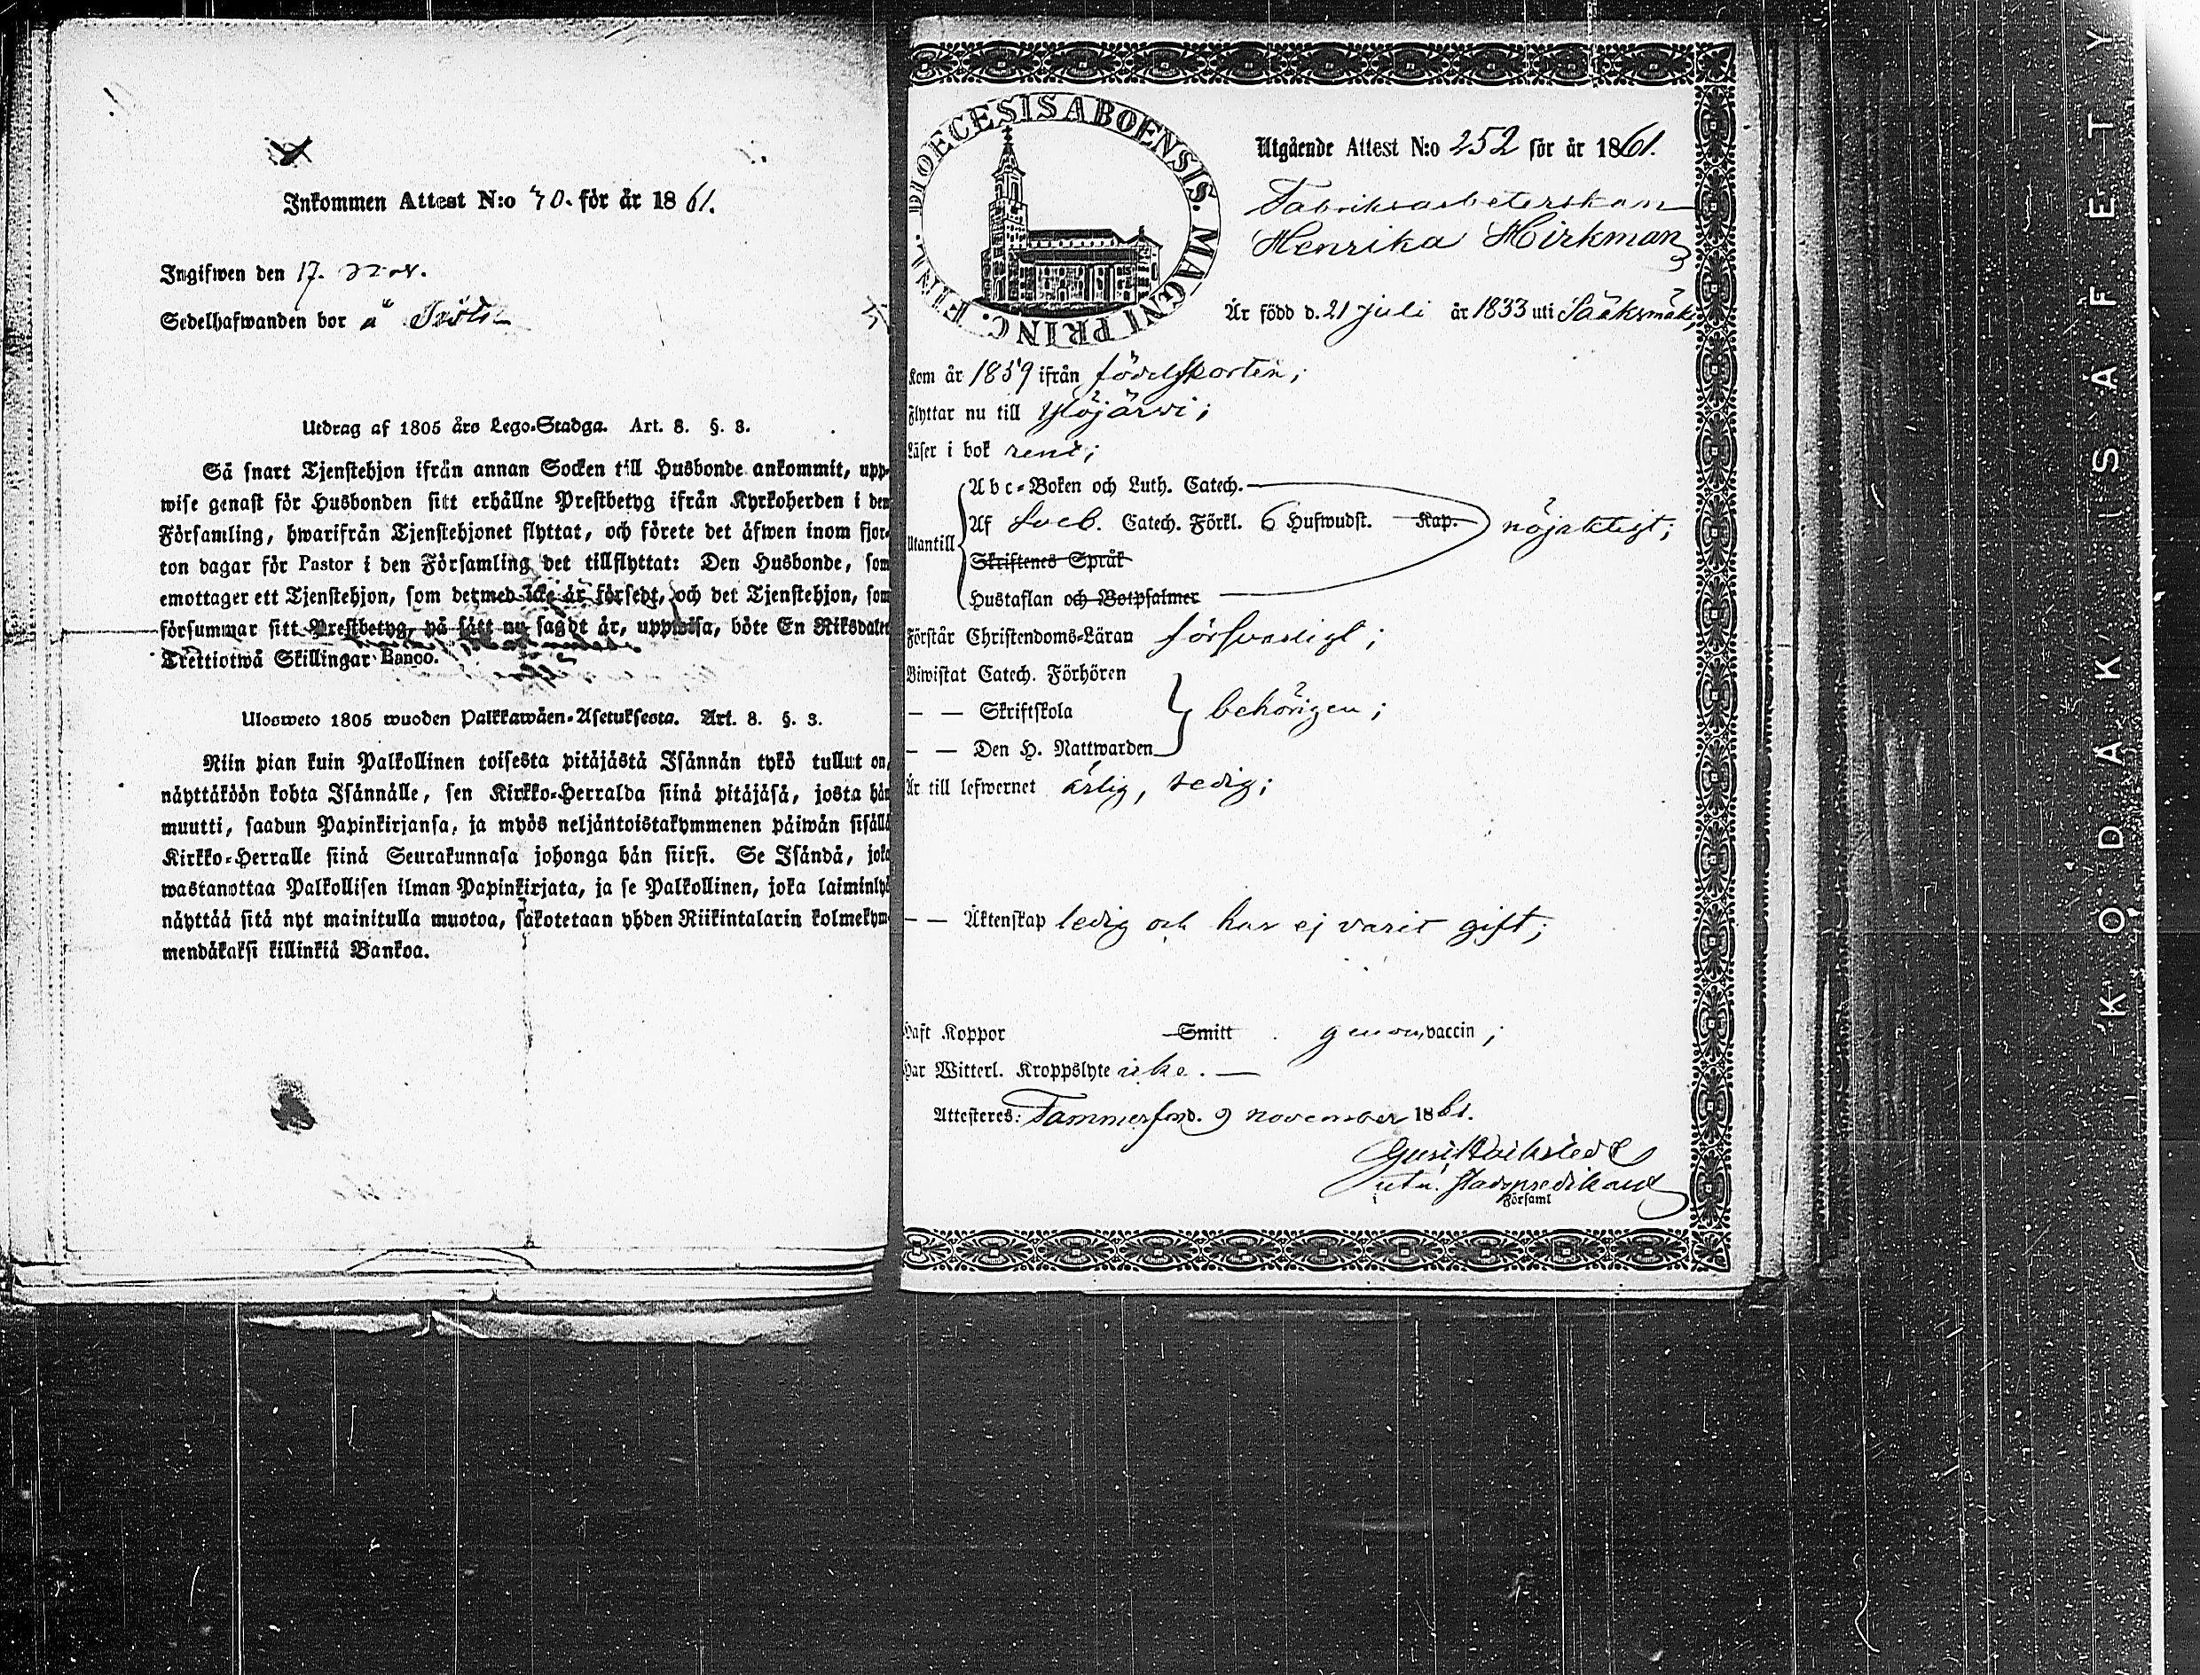 Inkommen Attest N:o 70. för år 1861.
Ingifwen den 17. Nov.
Sedelhafwanden bor å
Utdrag af 1805 års Lego-Stadga. Art. 8. §. 3.
Så snart Tjenstehjon ifrån annan Socken till Husbonde ankommit, upp-
wise genast för Husbonden sitt erhållne Prestbetyg ifrån Kyrkoherden i den
Församling, hwarifrån Tjenstehjonet flyttat, och förete det äfwen inom fjor-
ton dagar för Pastor i den Församling det tillflyttat: Den Husbonde, som
emottager ett Tjenstehjon, som dermed icke är försedt, och det Tjenstehjon, som
försummar sitt Prestbetyg, på sätt nu sagdt är, uppwisa, böte En Riksdaler
Trettiotwå Skillingar Banco.
Ulosweto 1805 wuoden Palkkawäen-Asetuksesta. Art. 8. §. 3.
Niin pian kuin Palkollinen toisesta pitäjästä Isännän tykö tullut on,
näyttäköön kohta Isännälle, sen Kirkko-Herralda siinä pitäjäsä, josta hän
muutti, saadun Papinkirjansa, ja myös neljäntoistakymmenen päiwän sisällä
Kirkko-Herralle siinä Seurakunnasa johonga hän siirsi. Se Isändä, joka
wastanottaa Palkollisen ilman Papinkirjata, ja se Palkollinen, joka laiminlyö
näyttää sitä nyt mainitulla muotoa, sakotetaan yhden Riikintalarin kolmekym-
mendäkaksi killinkiä Bankoa.
DIOECESIS ABOENSIS. MAGNI PRINC. FINL.
Utgående Attest N:o 252 för år 1861.
Fabriksarbeterskan
Henrika Hirkman
Är född d. 21 juli år 1833 uti Sääksmäki,
Kom år 1859 ifrån födelseorten;
Flyttar nu till Ylöjärwi;
Läser i bok rent;
Abc-Boken och Luth. Catech.
Utantill Af Sveb. Catech. Förkl. 6 Hufwudst. Kap. nöjaktigt;
Skriftenes Språk
Hustaflan och Botpsalmer
Förstår Christendoms-Läran försvarligt;
Biwistat Catech. Förhören
— — Skriftskola behörigen;
— — Den H. Nattwarden
Är till lefwernet ärlig, sedig;
— — Äktenskap ledig och har ej varit gift;
Haft Koppor Smitt genom vaccin;
Har Witterl. Kroppslyte icke. —
Attesteres: Tammerfors d. 9 november 1861.
Gust.
utn. Stadspredikant
i Församl
KODAK SAFETY